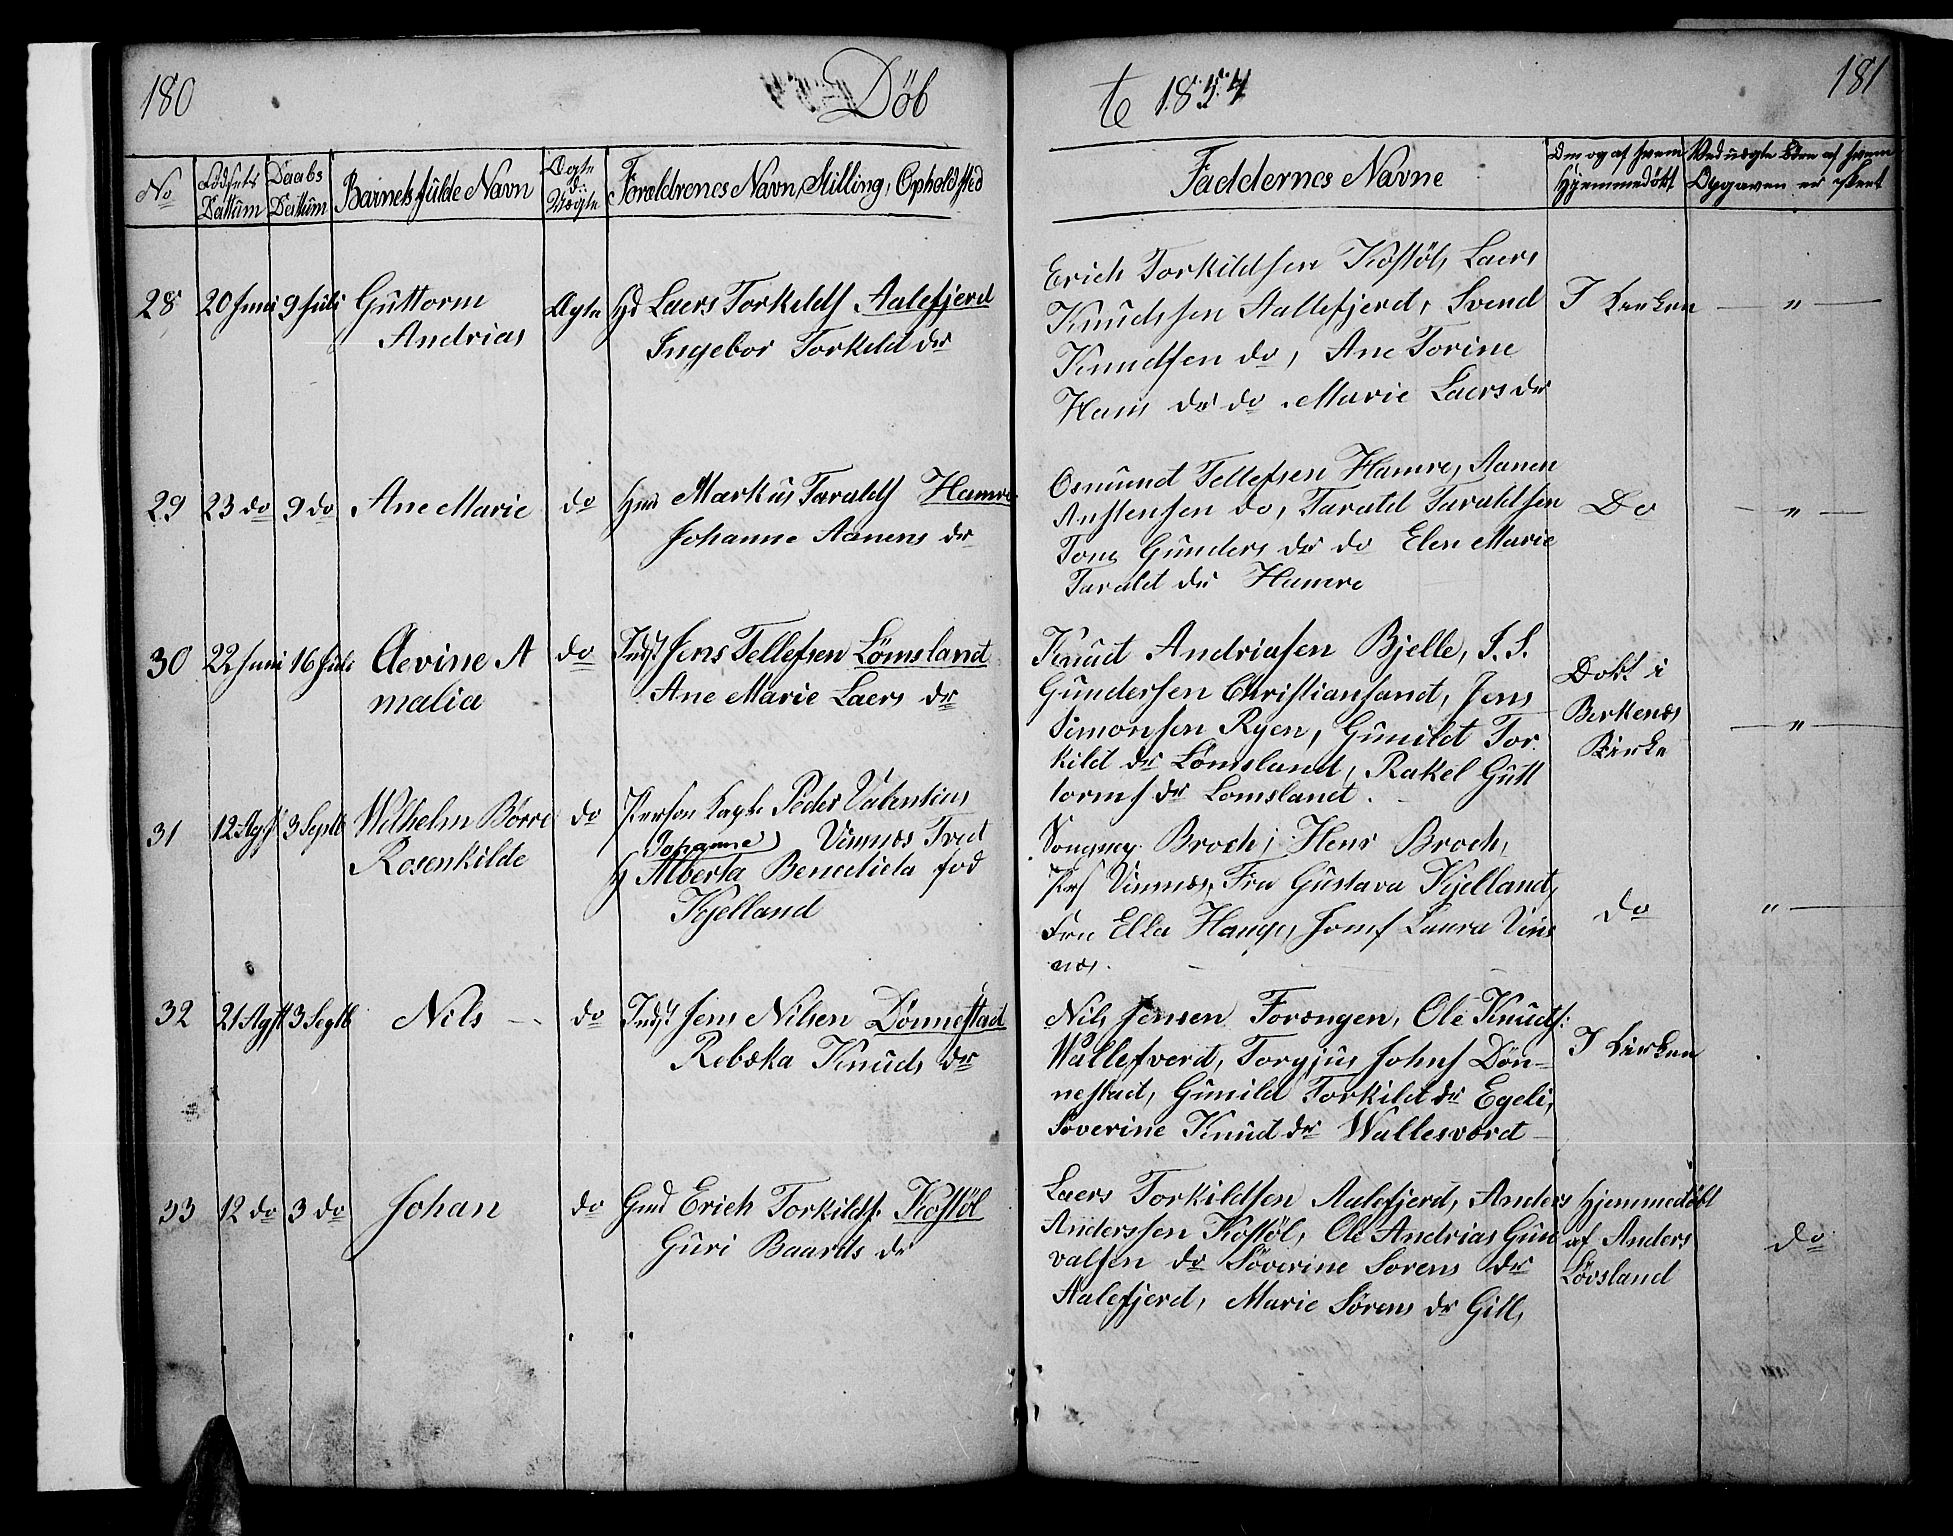 180
Döb
te 1854
181
No
Födsels Dattum
Daabs Dattum
Barnets fulde Navn
Ægte d: Uægte
Foraldrenes Navn, Stilling, Opholdsted
Faddernes Navne
Om og af hvem Hjemmedöbt
Ved uægte Börn af hvem Opgaven er skeet
28 20 Juni 9 Juli Guttorm Ægte Hd Laers Torkilds Aalefjerd
Andrias Ingebor Torkeld dr
Erich Torkildsen Kostöl, Laers
Knudssen Aallefjerd, Svend
Knudsen do, Ane Torine
Hans dr do Marie Laers dr
I Kirken
"
29 23 do 9 do Ane Marie do Markus Taralds Hamre
Johanne Aanens dr
Osmund Tellefsen Hamre, Aanen
Anstensen do, Tarald Taraldsen
Tone Gunders dr do Elen Marie
Tarald dr Hamre
Do
"
30 22 Juni 16 Juli Aevine A do Indst Jens Tellefsen Lömsland
malia Ane Marie Laers dr
Knud Andriasen Bjelle, S. S.
Gundersen Christiansand, Jens
Simonsen Ryen, Gunild Tor
kild dr Lömsland, Rakel Gutt
torms dr Lomsland.
Dobt i
Berkenæs
Kirke
"
31 12 Agst 3 Septb Wilhelm Börre do Person Kapl. Peder Valentin
Rosenkilde Johanne Vinnæs Fred
Alberta Benedicta föd
Kjelland
Broch, Henr Broch,
Vinnæs, Fru Gustava Kjelland,
Fru Ella Hauge, Jomf Laura Vin
næs.
do
"
32 21 Agst 3 Septb Nils do Indst Jens Nilsen Dönnestad
Rebæka Knuds dr
Nils Jensen Forængen, Ole Knuds:
Wallesverd, Torgjus Johns Dön-
nestad, Gunild Torkild dr Egeli,
Soverine Knud dr Wallesvord
I Kirken
33 12 do 3 do Johan do Gmd Erich Torkilds. Kostöl
Guri Baards dr
Laers Torkildsen Aalefjerd, Anders
Anderssen Kostöl, Ole Andrias Gun
valsen do Söverine Sorens dr
Aalefjerd, Marie Sörens dr Gill,
Hjemmedöbt
af Anders
Lövsland
do